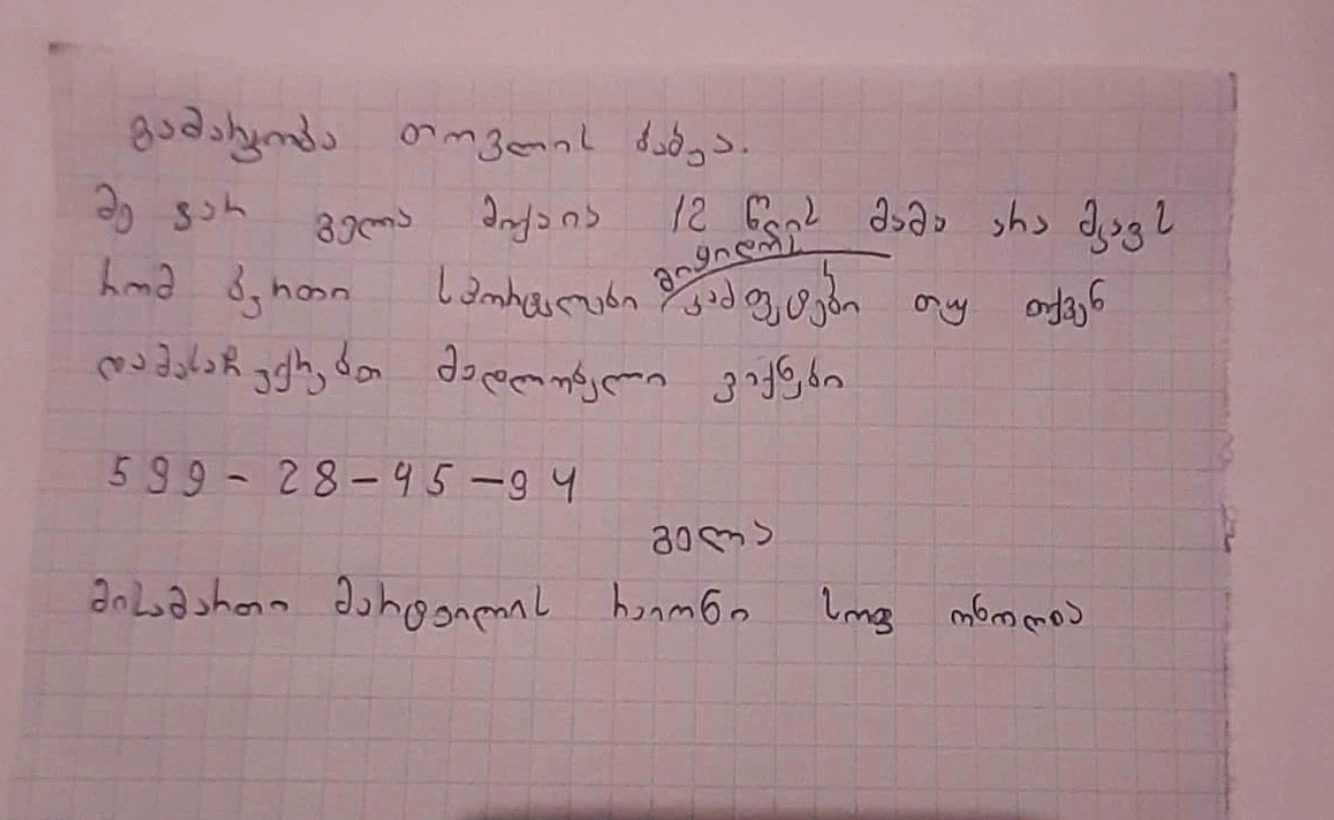 გამარჯობა თოვლის ბაბუა.
მე ვარ გელა მიქაია 12 წლის მამა არა მყავს
რომ ბერთი სპორტულები მივიღო კამფეტები თუ თქვენ
დამესაჩუქრებით მადლობელი ვიქნები
599-28-45-94
გელა
მისამართი მარტვილის რაიონი სოფ ონოლია